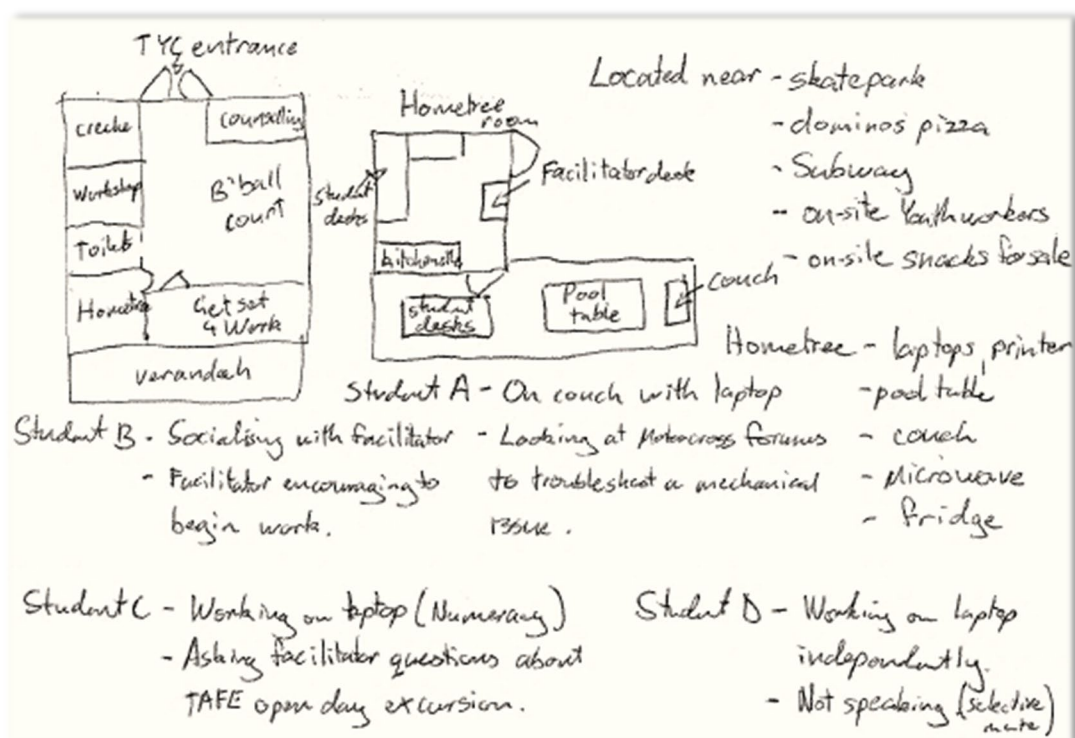 TYC entrance
creche
Counselling
Workshop
B'ball
court
Toilet
Hometree
Get set
4 Work
verandah
Hometree
room
Student
desks
Facilitator desk
kitchenette
student
desks
Pool
table
couch
Located near - skatepark
- dominos pizza
- Subway
- on-site Youthworkers
- on-site snacks for sale
Hometree - laptops, printer
- pool table
- couch
- Microwave
- fridge
Student A - On couch with laptop
- Looking at Motocross forums
to troubleshoot a mechanical
issue.
Student B - Socialising with facilitator
- Facilitator encouraging to
begin work.
Student C - Working on laptop (Numeracy)
- Asking facilitator questions about
TAFE open day excursion.
Student D - Working on laptop
independently.
- Not speaking (selective
mute)